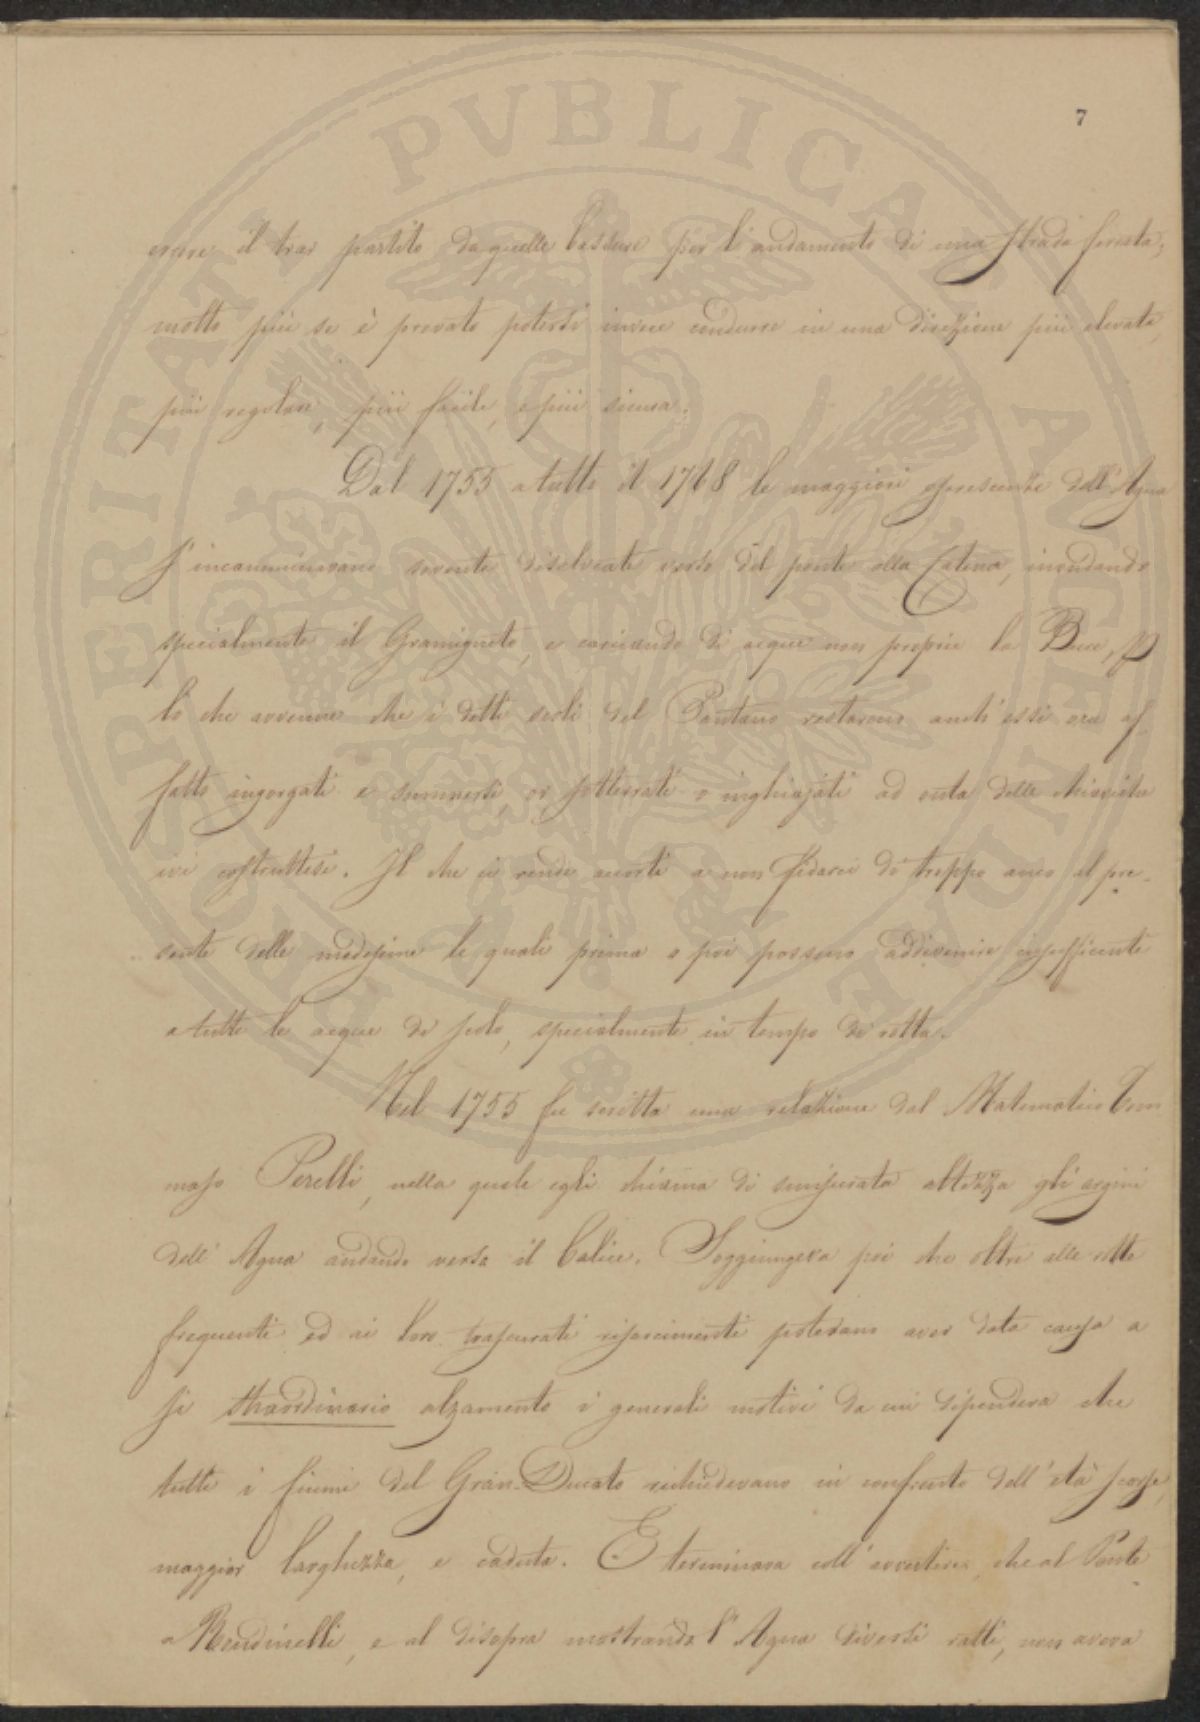 7
PROSPERITATI PVBLICAE AVGENDAE
errore il trar partito da quelle bassure per l'andamento di una Strada ferrata,
molto più se è provato potersi invece condurre in una direzione più elevata,
più regolare, più facile, e più sicura.
Dal 1755 a tutto il 1768 le maggiori escrescenze dell'Agna
s'incamminavano sovente disalveate verso del ponte alla Catena, inondando
specialmente il Gramigneto, e caricando di acque non proprie la Bure, p
lo che avvenne che i detti scoli del Pantano restarono anch'essi ora af-
fatto ingorgati e sommersi, or sotterrati o inghiajati ad onta delle chiaviche
ivi costruttesi. Il che ci rende accorti a non fidarci di troppo anco al pre-
sente delle medesime le quali prima o poi possono addivenire insufficente
a tutte le acque di scolo, specialmente in tempo di rotta.
Nel 1755 fu scritta una relazione dal Matematico Tom
maso Perelli, nella quale egli chiama di smisurata altezza gli argini
dell'Agna andando verso il Calice. Soggiungeva poi che oltre alle rotte
frequenti ed ai loro trascurati risarcimenti potevano aver dato causa a
sì straordinario alzamento i generali motivi da cui dipendeva che
tutti i fiumi del Gran-Ducato richiedevano in confronto dell'età scorse,
maggior larghezza, e caduta. E terminava coll'avvertire, che al Ponte
a Bendinelli, e al disopra mostrando l'Agna diversi ratti, non aveva